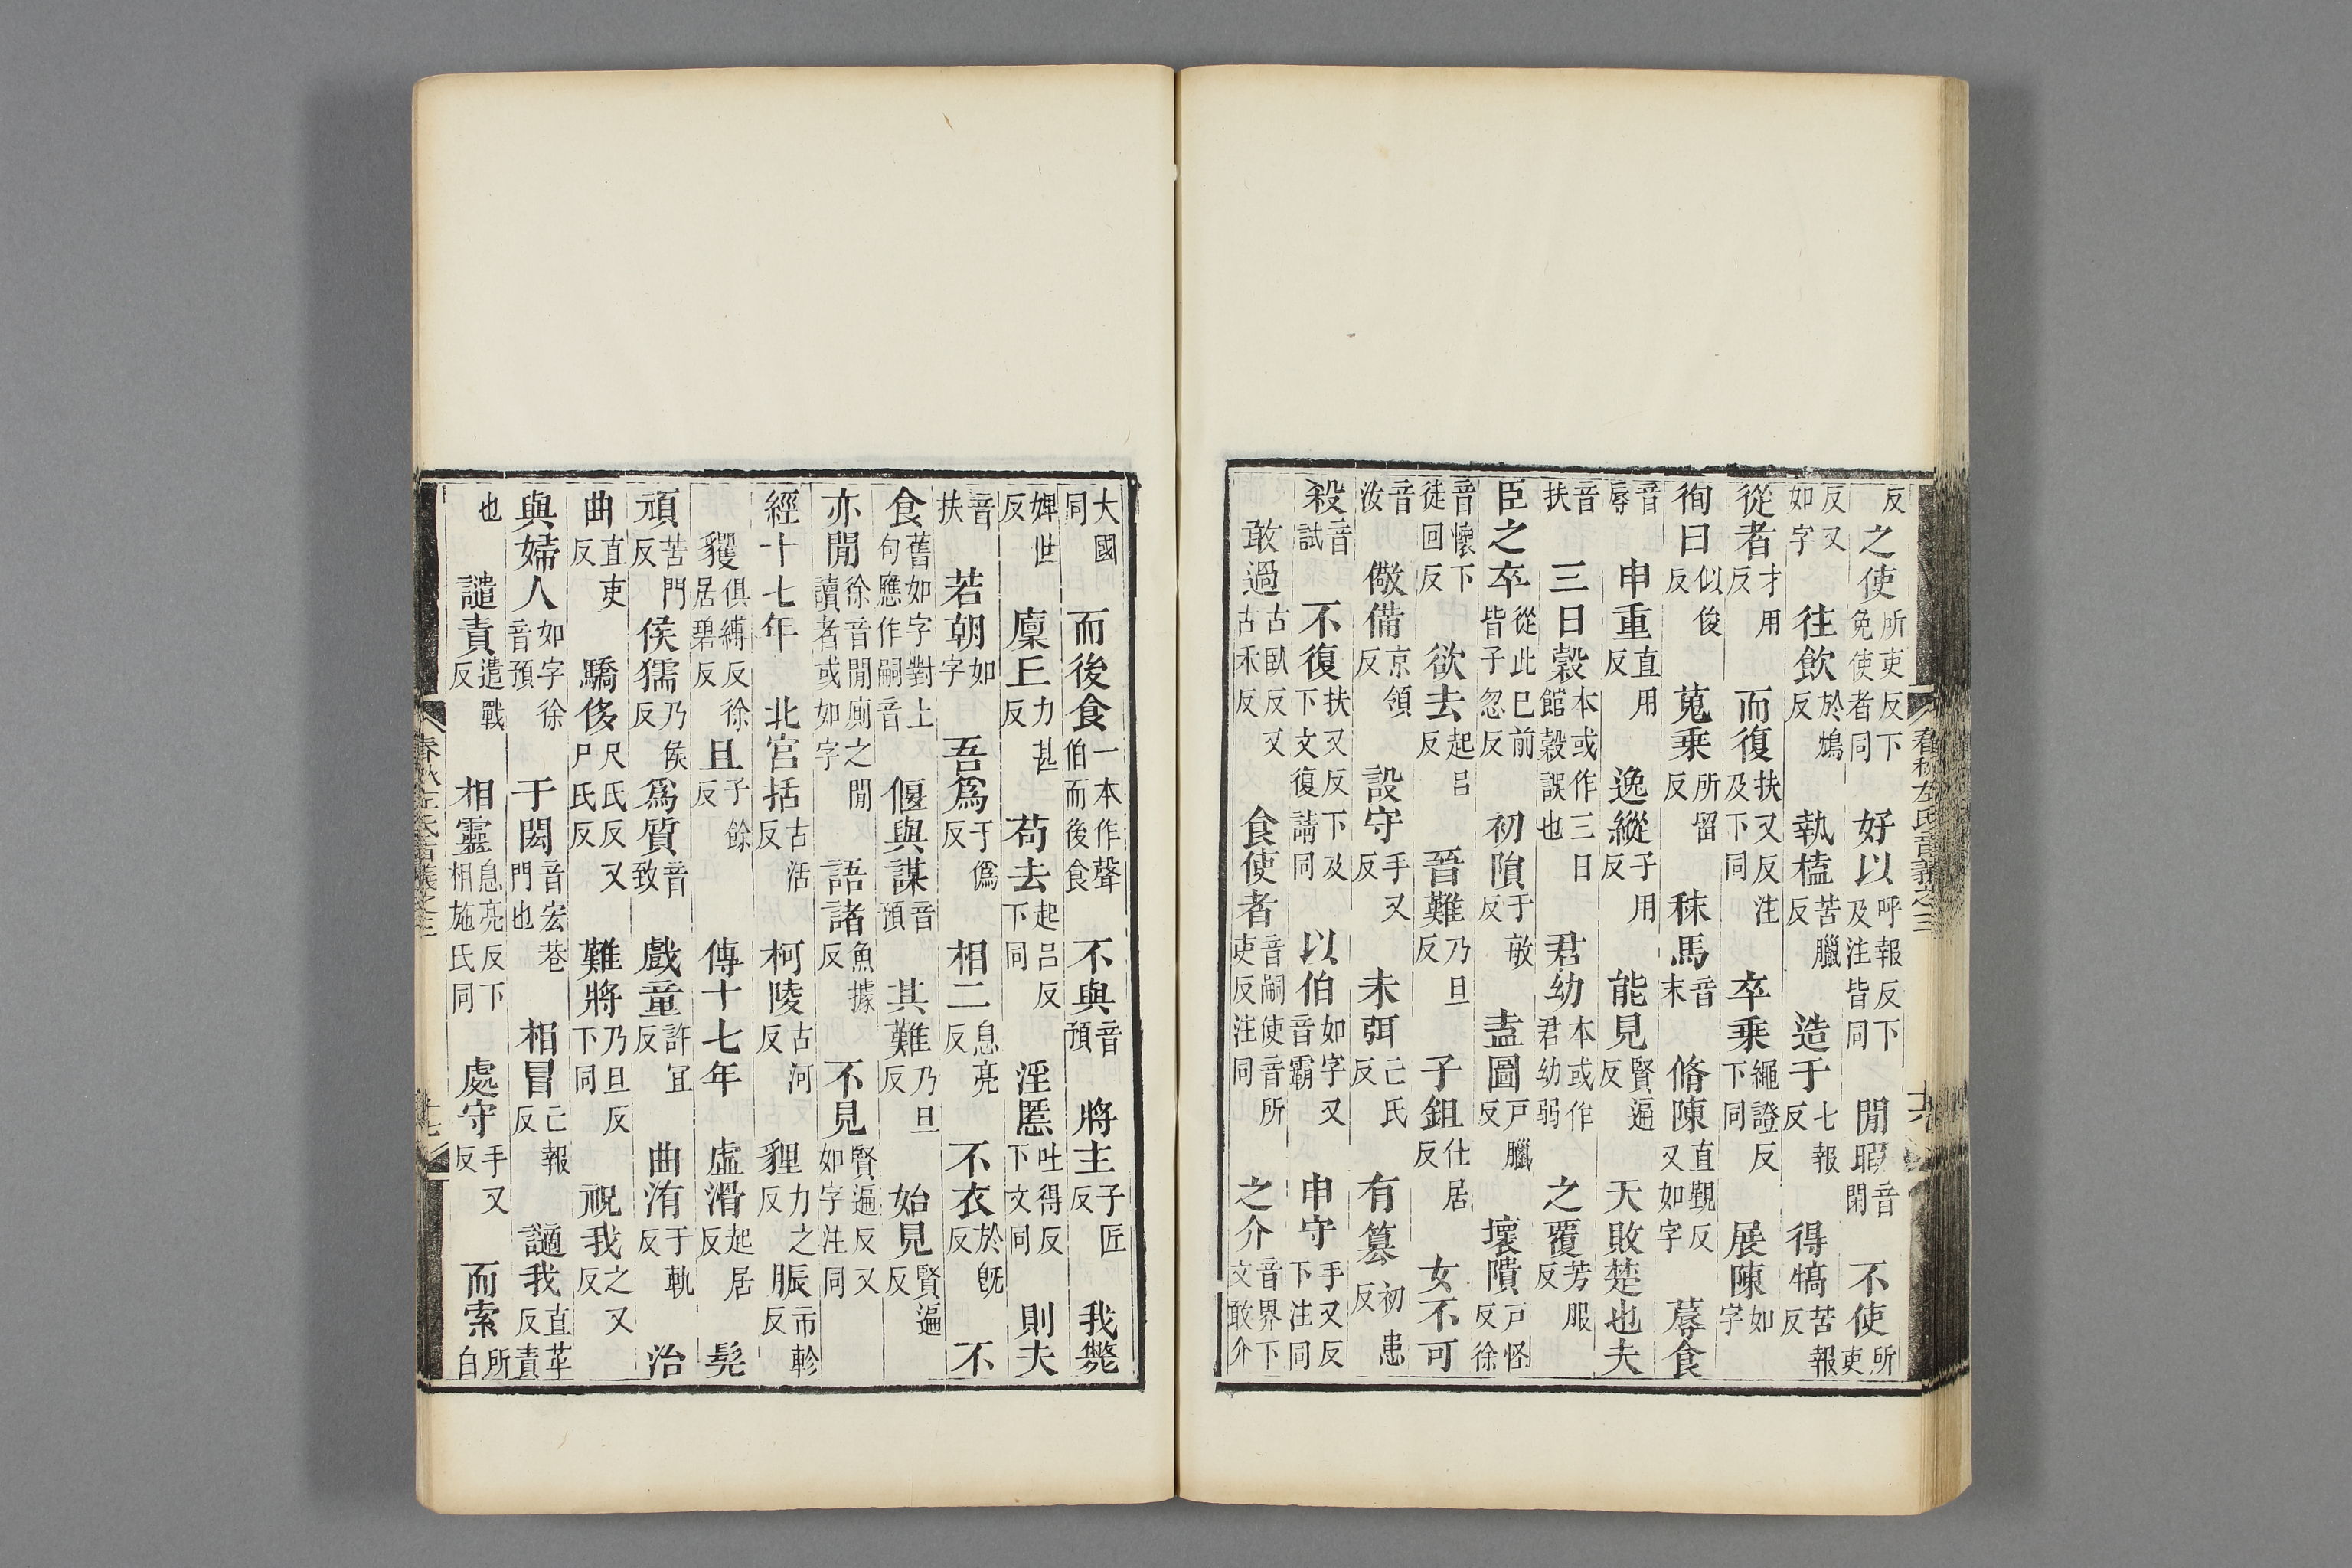 反之使所吏反下免使者同好以呼報反下及注皆同閒暇音閑不使所吏
反又如字往飲於鴆反執榼苦臘反造于七報反得犒苦報反
從者才用反而復扶又反注及下同卒乘繩證反下同展陳如字
徇曰似俊反蒐乘所留反秣馬音末脩陳直覲反又如字蓐食
音辱申重直用反逸縱子用反能見賢遍反天敗楚也夫
音扶三日穀本或作三日館穀誤也君幼本或作君幼弱之覆芳服反
臣之卒從此巳前皆子忽反初隕于敏反盍圖戸臘反壞隤戸怪反徐
音懷下徒回反欲去起呂反晉難乃旦反子鉏仕居反女不可
音汝儆備京領反設守手又反未弭亡氏反有篡初患反
殺音試不復扶又反下及下文復請同以伯如字又音霸申守手又反下注同
敢過古臥反又古禾反食使者音嗣使音所吏反注同之介音界下文敢介
春秋左氏音義之三
大國同而後食一本作聲伯而後食不與音預將主子匠反我斃
婢世反廩丘力甚反苟去起呂反下同淫慝吐得反下文同則夫
音扶若朝如字吾爲于僞反相二息亮反不衣於旣反不
食舊如字對上句應作嗣音偃與謀音預其難乃旦反始見賢遍反
亦閒徐音閒廁之閒讀者或如字語諸魚據反不見賢遍反又如字注同
經十七年北宮括古活反柯陵古河反貍力之反脤市軫反
貜俱縛反徐居碧反且子餘反傳十七年虛滑起居反髡
頑苦門反侯獳乃侯反爲質音致戲童許宜反曲洧于軌反治
曲直吏反驕侈尺氏反又尸氏反難將乃旦反下同祝我之又反
與婦人如字徐音預于閎音宏巷門也相冒亡報反讁我直革反責
也譴責遣戰反相靈息亮反下相施氏同處守手又反而索所白
春秋左氏音義之三